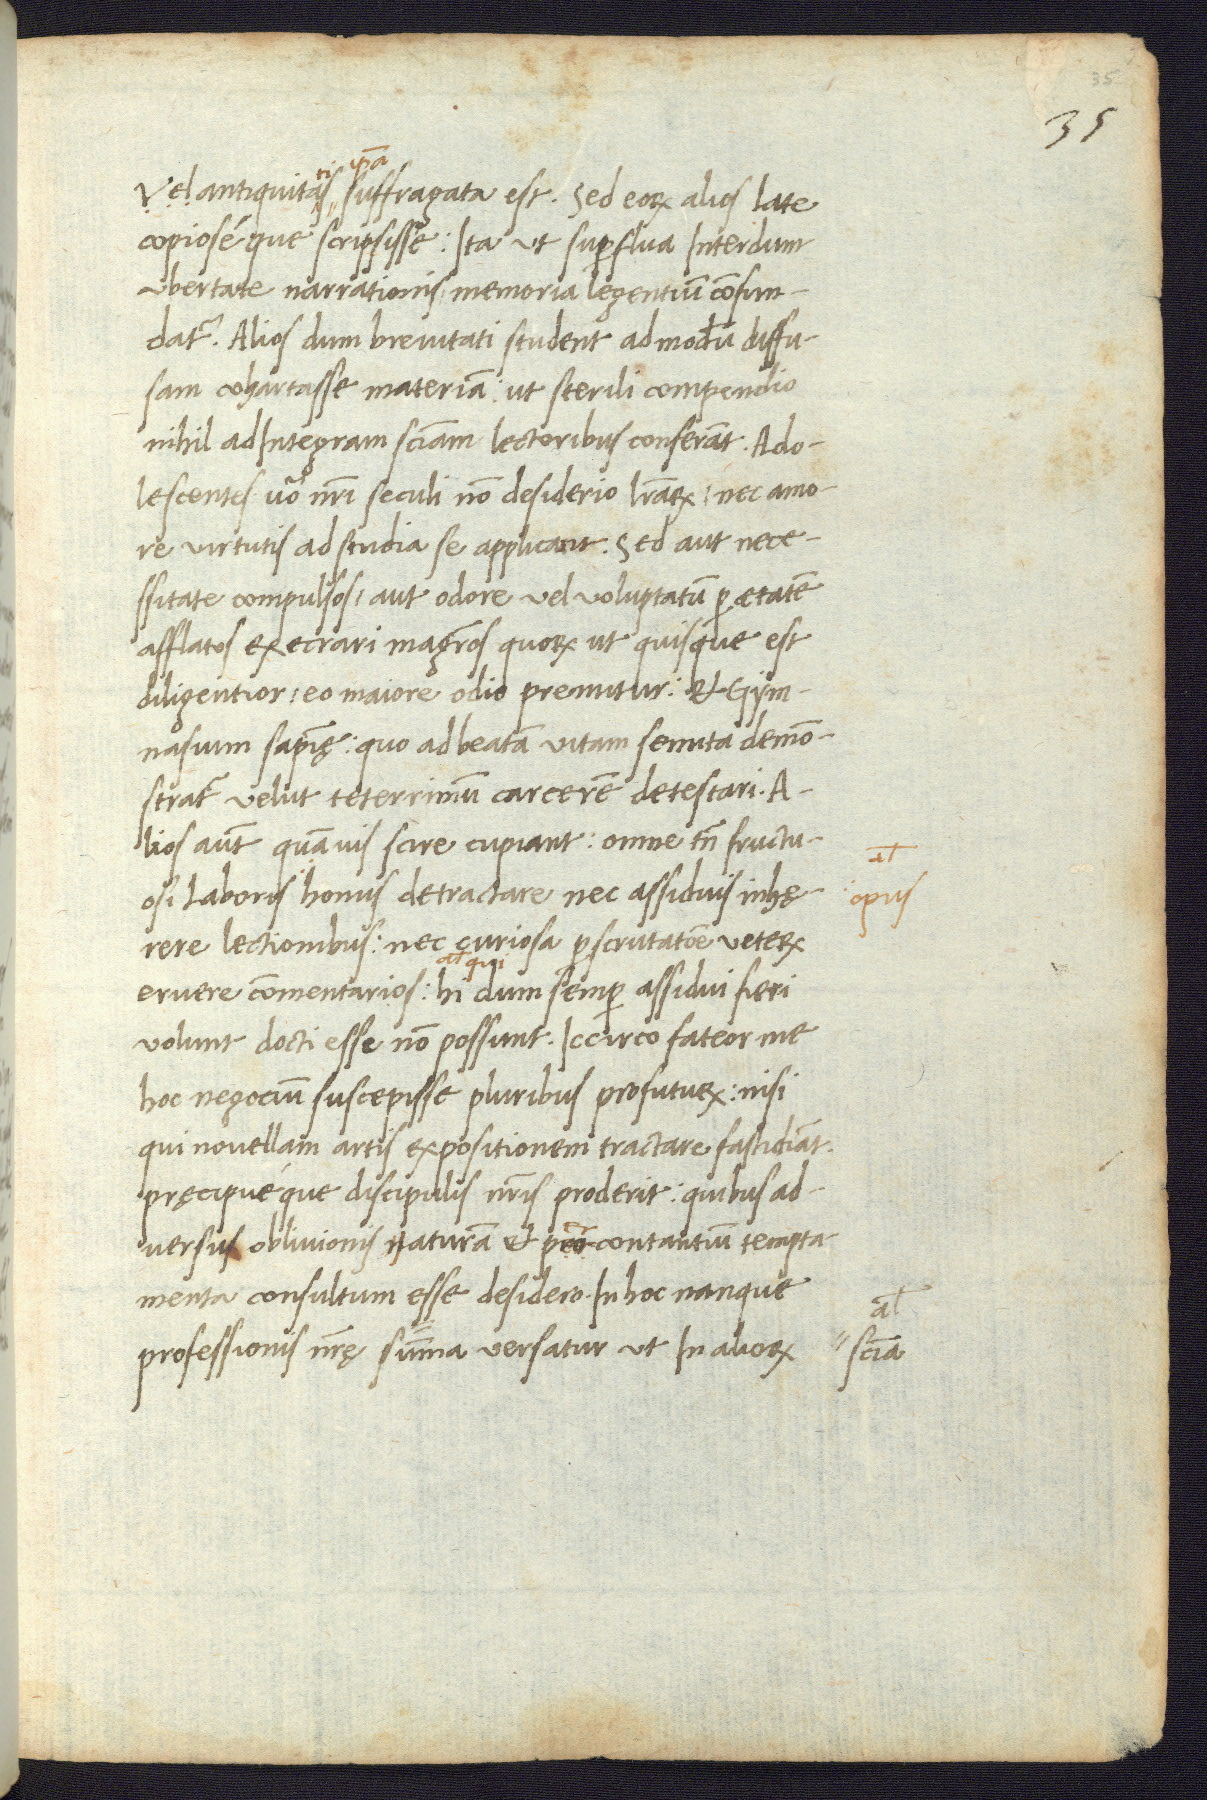 35
35
ti ip̄a
Vel antiquitas suffragata est. Sed eoꝝ alios late
copioséque scripsisse: Ita ut sup̱flua Interdum
ubertate narrationis, memoria legentiū cōfun-
dat᷑. Alios dum breuitati student admodū diffu-
sam cohartasse materiā: ut sterili compendio
nihil adIntegram sciam̄ lectoribus conferāt. Ado-
lescentes uō nr̄i seculi nō desiderio lr̄aꝝ: nec amo-
re virtutis ad studia se applicant. Sed aut nece-
ssitate compulsos, aut odore vel voluptatū ꝑ ętatē
afflatos execrari magr̄os quoꝝ ut quisque est
diligentior: eo maiore odio premitur: & Gym-
nasium sap̄ię: quo ad beatā vitam semita demō-
strat᷑ velut teterrimū carcerē detestari. A-
lios aūt quāuis scire cupiant: omne tn̄ fructu-
al̄
osi Laboris honus detractare nec assiduis inhę-
opus
rere lectionibus: nec curiosa ꝑscrutatōe veteꝝ
al̄ qui
eruere cōmentarios: hi dum semꝑ assidui fieri
volunt docti esse nō possunt. Iccirco fateor me
hoc negociū suscepisse pluribus profutuꝝ: nisi
qui novellam artis expositionem tractare fastidiāt.
pręcipuéque discipulis nr̄is proderit: quibus ad-
versus oblivionis naturā & contantiū tempta-
menta consultum esse desidero. In hoc nanque
al̄
professionis nr̄ę sūma versatur ut In alioꝝ
scīa